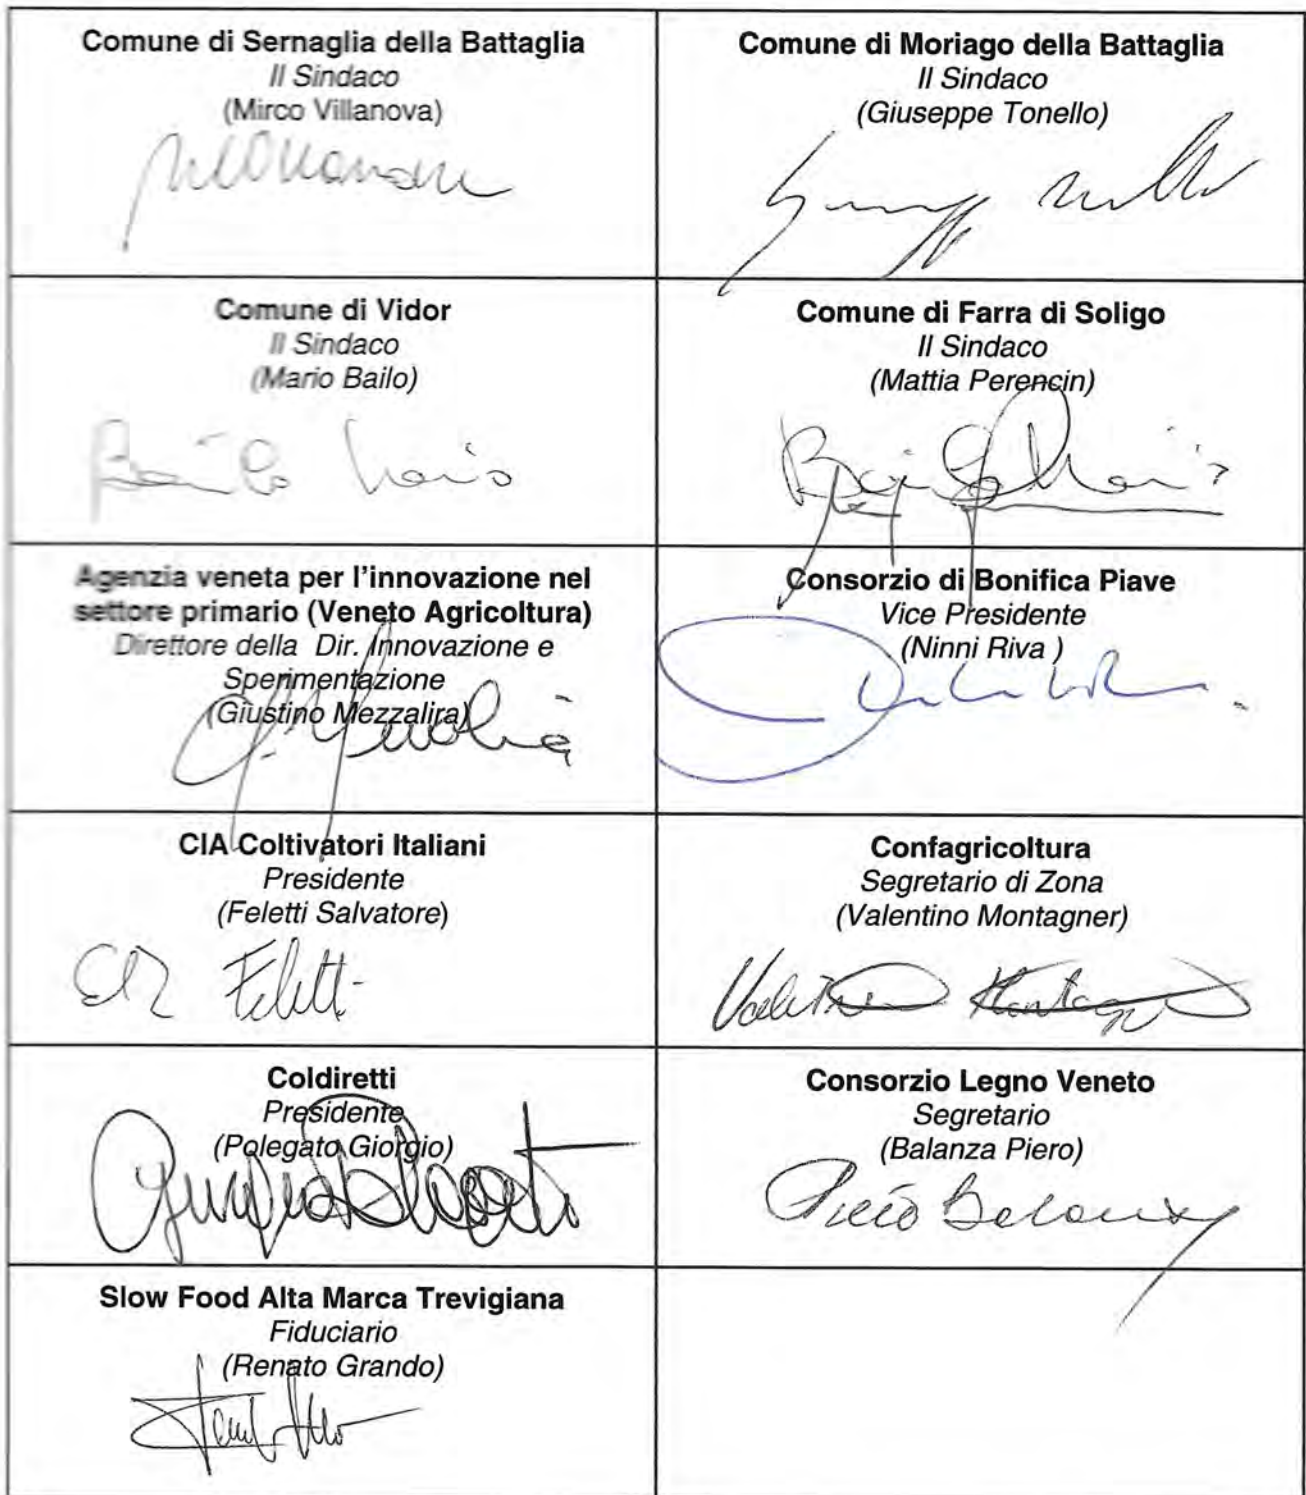 Comune di Sernaglia della Battaglia
Il Sindaco
(Mirco Villanova)
Comune di Moriago della Battaglia
Il Sindaco
(Giuseppe Tonello)
Comune di Vidor
Il Sindaco
(Mario Bailo)
Bailo Mario
Comune di Farra di Soligo
Il Sindaco
(Mattia Perencin)
Agenzia veneta per l'innovazione nel
settore primario (Veneto Agricoltura)
Direttore della Dir. Innovazione e
Sperimentazione
(Giustino Mezzalira)
Consorzio di Bonifica Piave
Vice Presidente
(Ninni Riva )
CIA Coltivatori Italiani
Presidente
(Feletti Salvatore)
Feletti
Confagricoltura
Segretario di Zona
(Valentino Montagner)
Coldiretti
Presidente
(Polegato Giorgio)
Consorzio Legno Veneto
Segretario
(Balanza Piero)
Piero Balanza
Slow Food Alta Marca Trevigiana
Fiduciario
(Renato Grando)